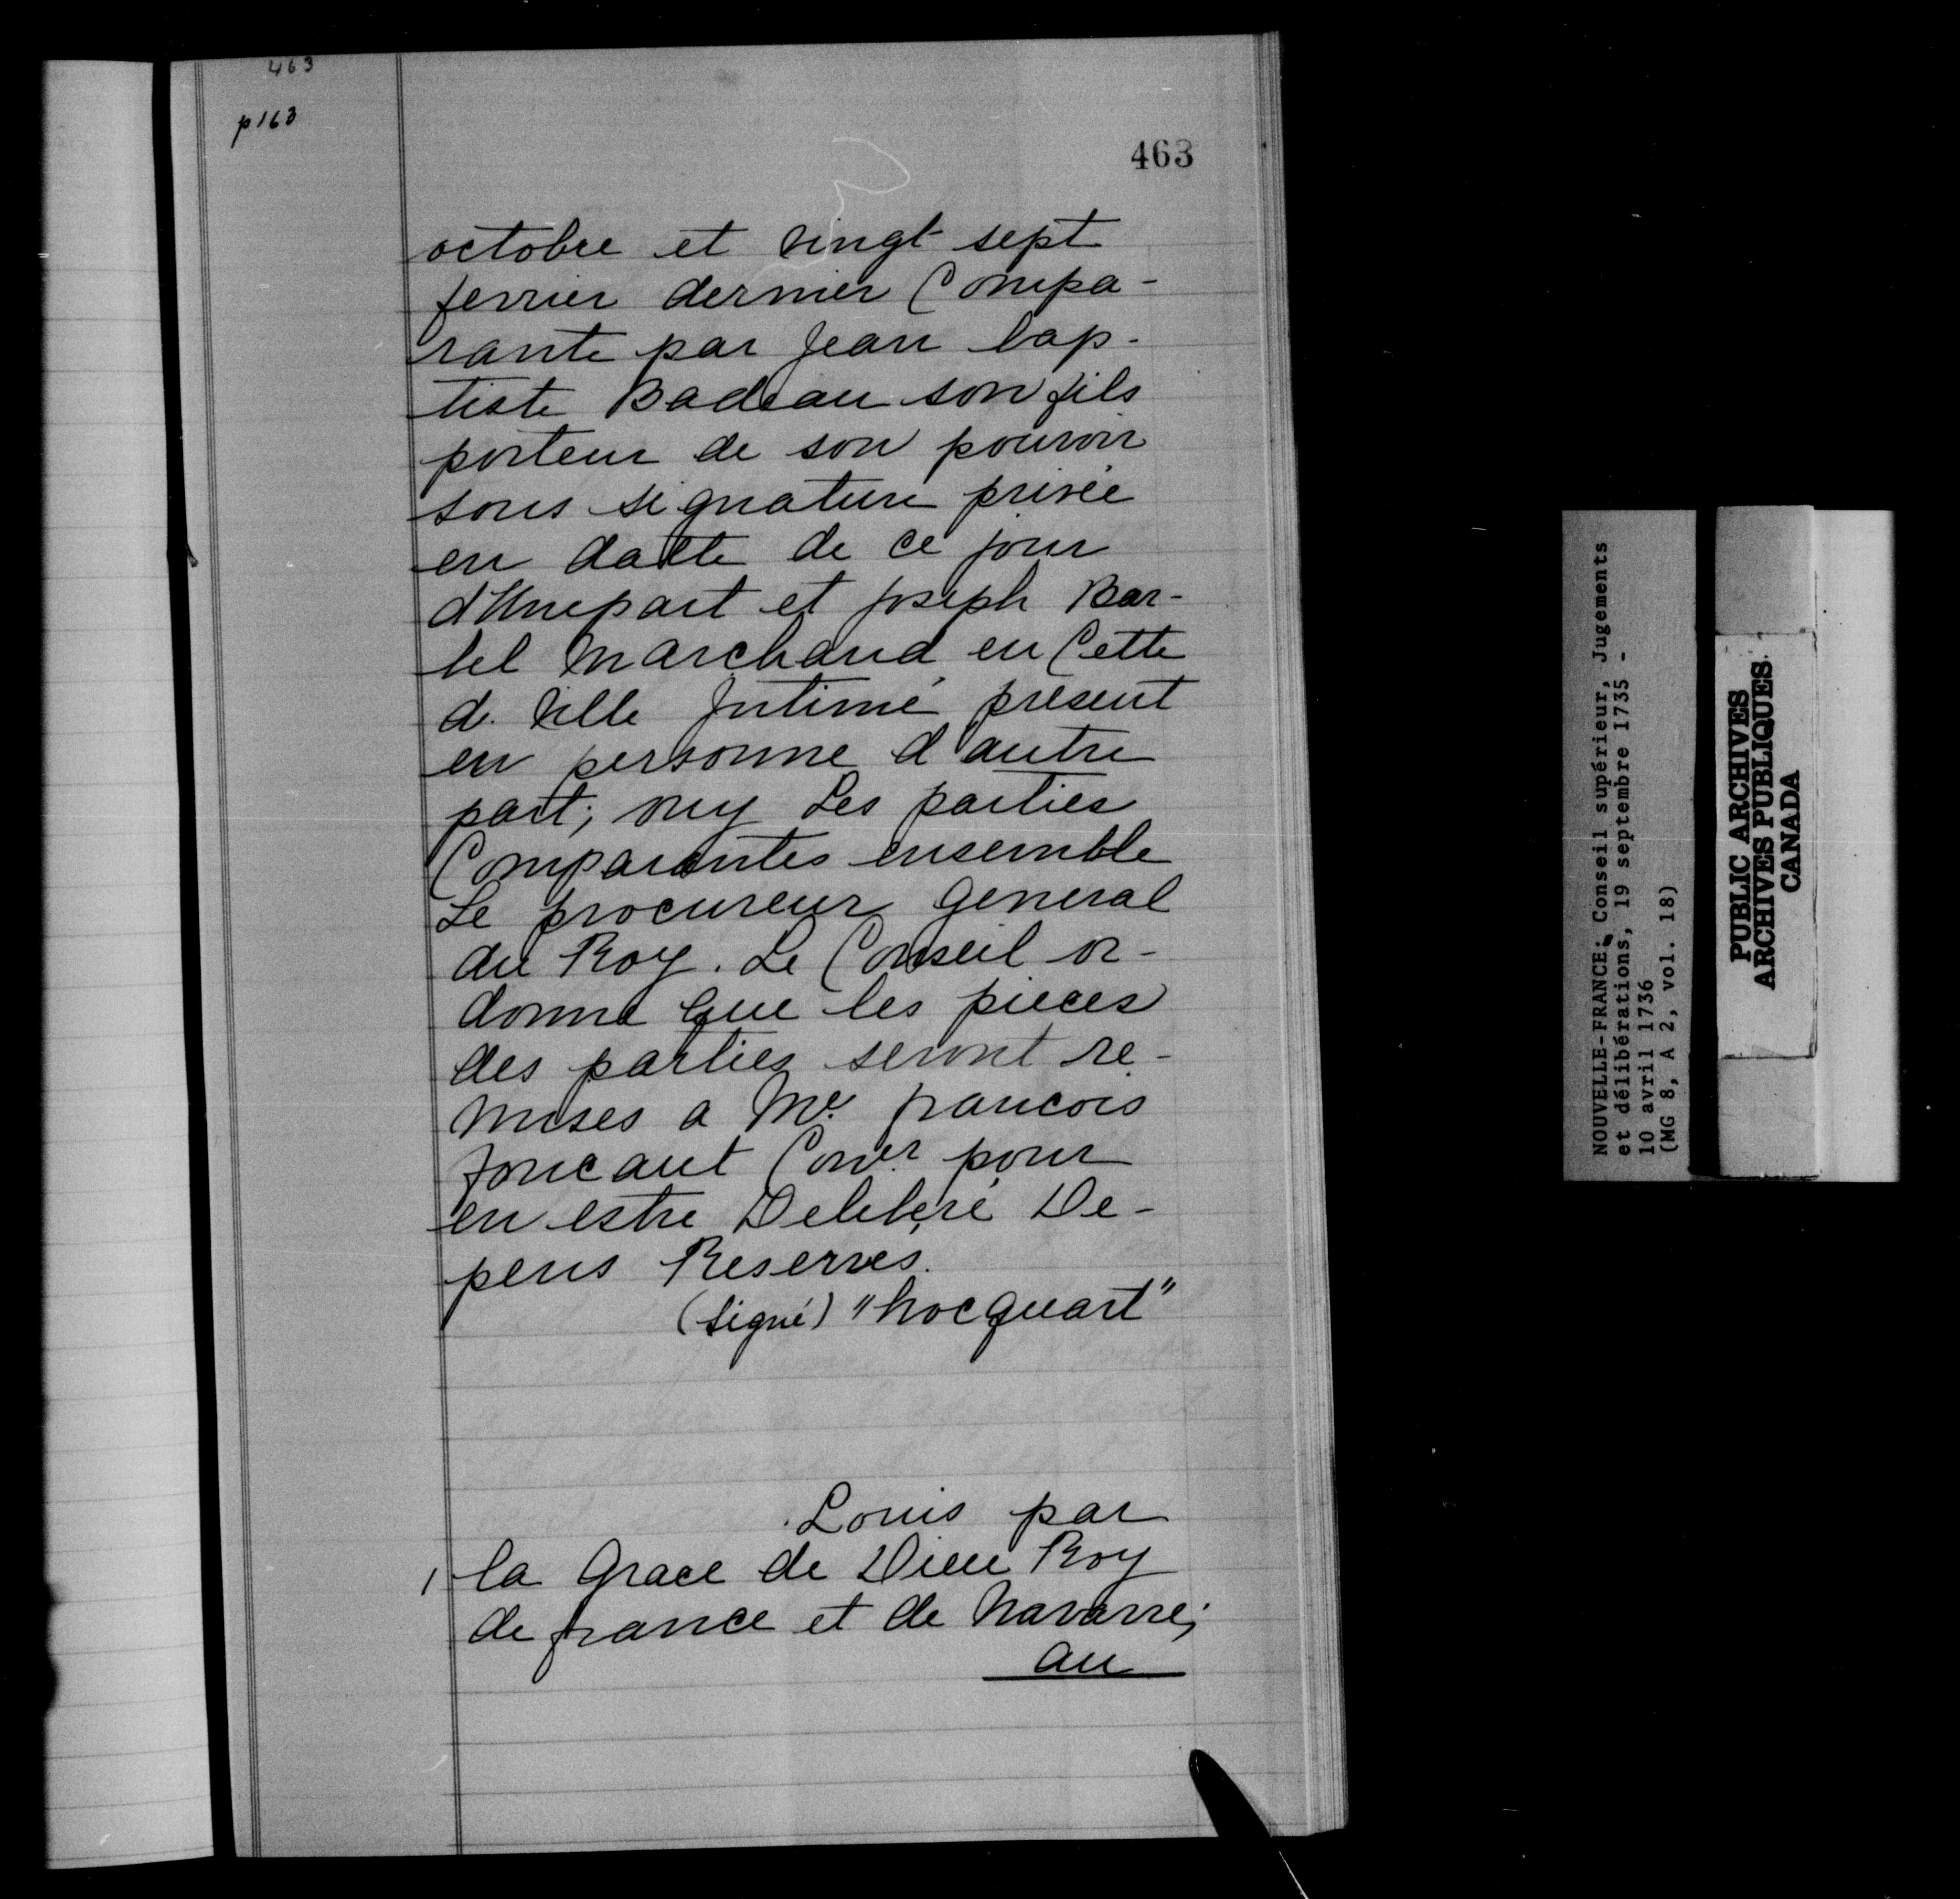 463
p163
463
octobre et vingt sept
fevrier dernier Compa-
rante par Jean bap-
tiste Badeau son fils
porteur de son pouvoir
sous signature privée
en datte de ce jour
d'Unepart et joseph Bar-
bel Marchand en Cette
d. Ville Intimé présent
en personne d'autre
part; ouy Les parties
Comparantes ensemble
Le procureur general
du Roy. Le Conseil or-
donne Que les pieces
des parties seront re-
mises a Me. francois
foucaut Conser. pour
en estre Deliberé De-
pens Reservés.
(signé) "hocquart"
Louis par
la Grace de Dieu Roy
de france et de Navarre;
au
NOUVELLE-FRANCE: Conseil supérieur, Jugements
et délibérations, 19 septembre 1735 -
10 avril 1736
(MG 8, A 2, vol. 18)
PUBLIC ARCHIVES
ARCHIVES PUBLIQUES
CANADA